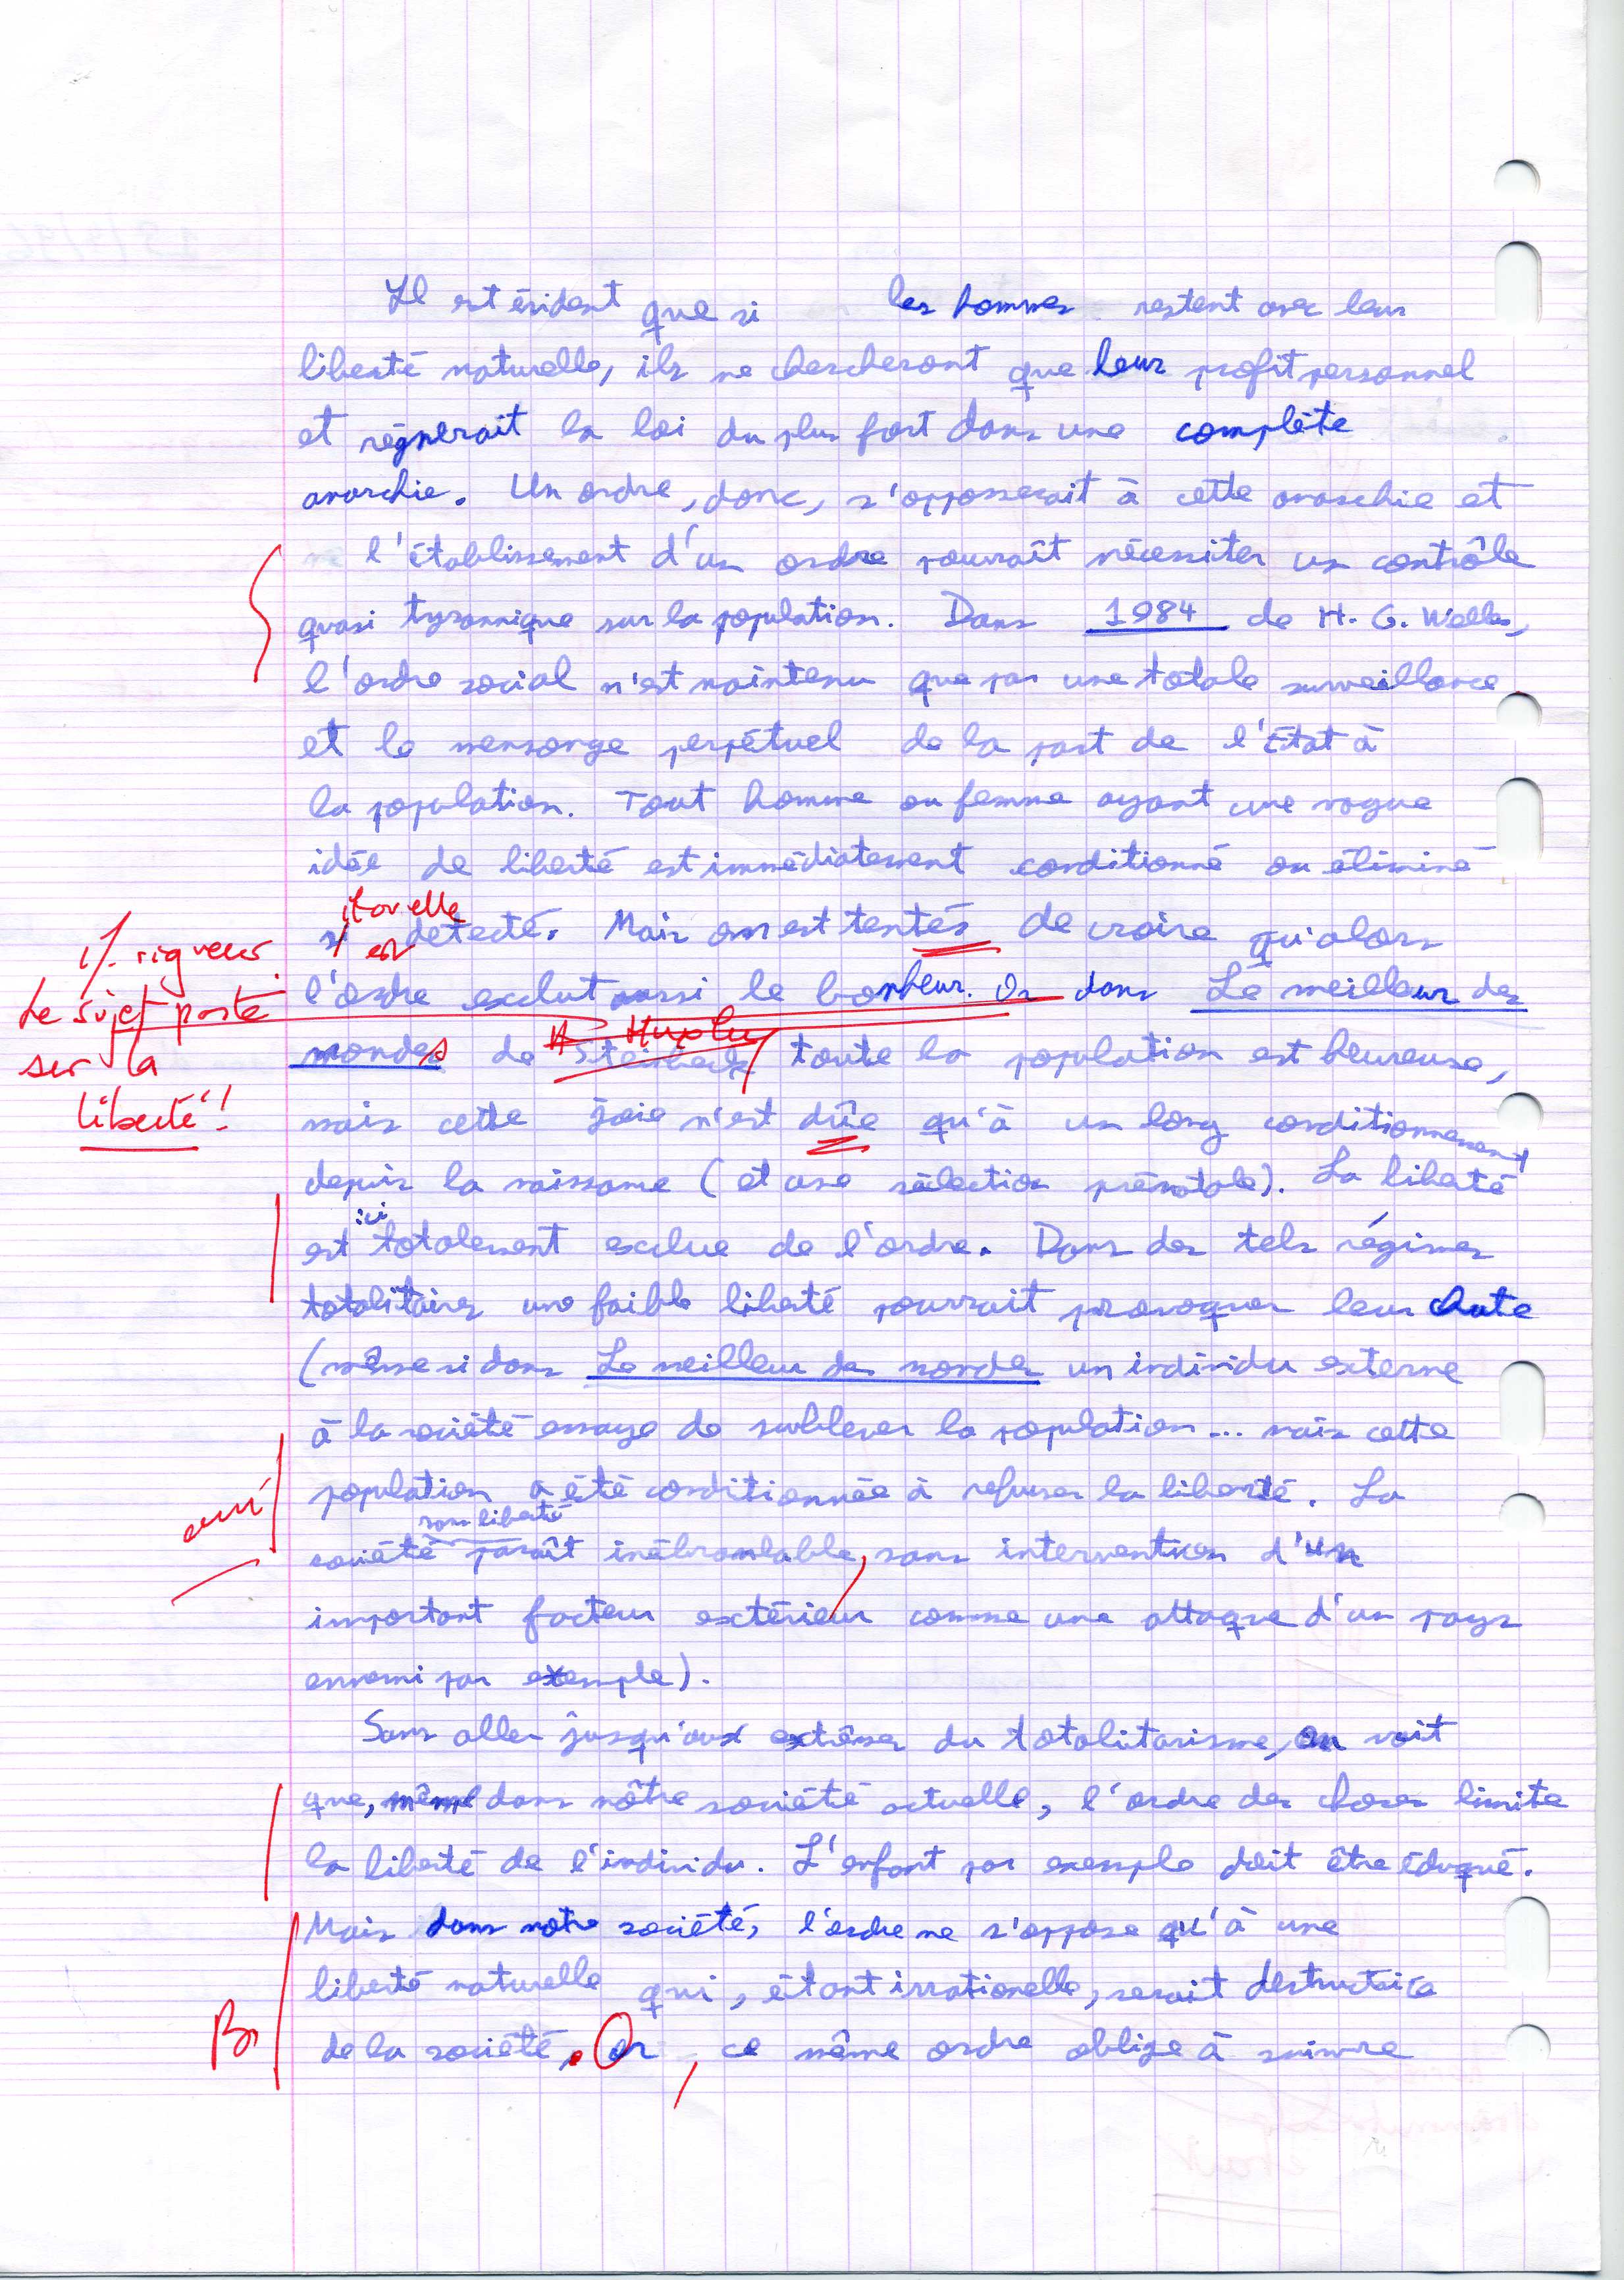 Il est évident que si les hommes restent avec leur
liberté naturelle, ils ne chercheront que leur profit personnel
et régnerait la loi du plus fort dans une complète
anarchie. Un ordre, donc, s'opposerait à cette anarchie et
l'établissement d'un ordre pourraît nécessiter un contrôle
quasi tyrannique sur la population. Dans 1984 de H. G. Welles,
l'ordre social n'est maintenu que par une totale surveillance
et le mensonge perpétuel de la part de l'État à
la population. Tout homme ou femme ayant une vague
idée de liberté est immédiatement conditionné ou éliminé
il ou elle
si est détecté. Mais on est tentés de croire qu'alors
l'ordre exclut aussi le bonheur. Or dans Le meilleur des
A. Huxley
mondes de Steinbeck toute la population est heureuse,
mais cette joie n'est dûe qu'à un long conditionnement
depuis la naissance (et une sélection prénatale). La liberté
est ici totalement exclue de l'ordre. Dans des tels régimes
totalitaires une faible liberté pourrait provoquer leur chute
(même si dans Le meilleur des mondes un individu externe
à la société essaye de sublever la population... mais cette
population a été conditionnée à refuser la liberté. La
sans liberté
société paraît inébranlable, sans intervention d'un
important facteur extérieur comme une attaque d'un pays
ennemi par exemple).
Sans aller jusqu'aux extrêmes du totalitarisme, on voit
que, même dans nôtre société actuelle, l'ordre des choses limite
la liberté de l'individu. L'enfant par exemple doit être éduqué.
Mais dans notre société, l'ordre ne s'oppose qu'à une
liberté naturelle qui, étant irrationelle, serait destructrice
de la société. Or, ce même ordre oblige à suivre
rigueur
Le sujet porte
sur la
liberté !
B